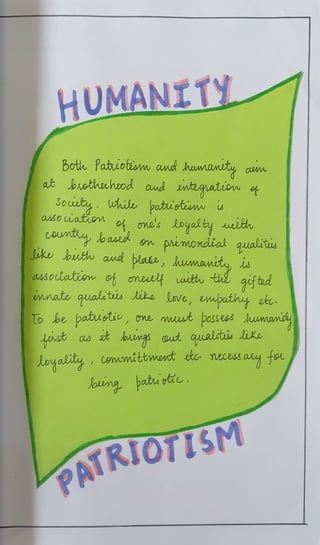 HUMANITY
Both Patriotism and humanity aim
at brotherhood and integration of
Society. While patriotism is
association of one's loyalty with
country based on primordial qualities
like birth and place, humanity is
association of oneself with the gifted
innate qualities like love, empathy etc.
To be patriotic, one must possess humanity
first as it brings out qualities like
loyality, committment etc necessary for
being patriotic.
PATRIOTISM